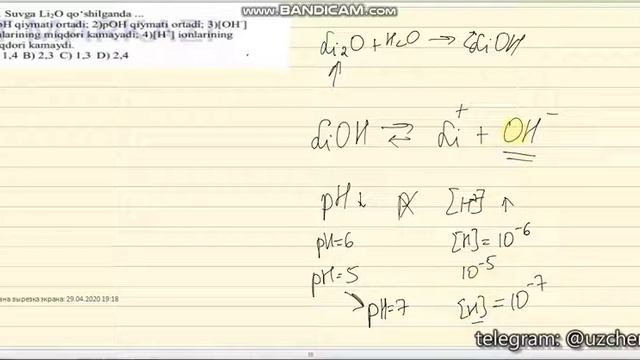 WWW.BANDICAM.COM
Suvga Li₂O qo'shilganda ...
pH qiymati ortadi; 2)pOH qiymati ortadi; 3)[OH⁻]
miqdori kamayadi; 4)[H⁺] ionlarining
kamaydi.
1,4 B) 2,3 C) 1,3 D) 2,4
Li₂O + H₂O → 2LiOH
↑
LiOH ⇄ Li⁺ + OH⁻
pH ↓ [H⁺] ↑
pH=6 [H]=10⁻⁶
pH=5 10⁻⁵
pH=7 [H]=10⁻⁷
вырезка экрана: 29.04.2020 19:18
telegram: @uzcher